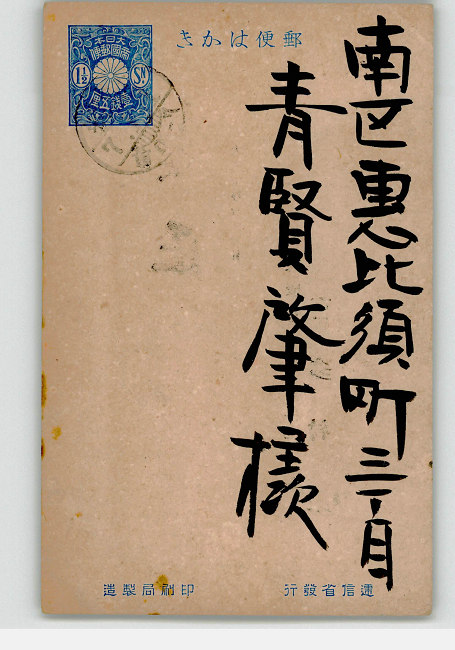 郵便はかき
大日本
帝國郵便
1½ Sn
壹銭五厘
南区惠比須町三丁目
青賢肇樣
遞信省發行
印刷局製造